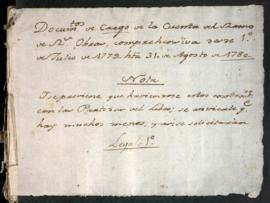 Docum.tos de Cargo de la Cuenta del Ramo
de Rs. Obras, comprehensiva desde 1.o
de Julio de 1779 hta 31 de Agosto de 1780
Nota
Se previene que haviendose estos
con las Partidas del Libro, se q.e
hay muchos menos, y se solicitarán
Legajo 1.o